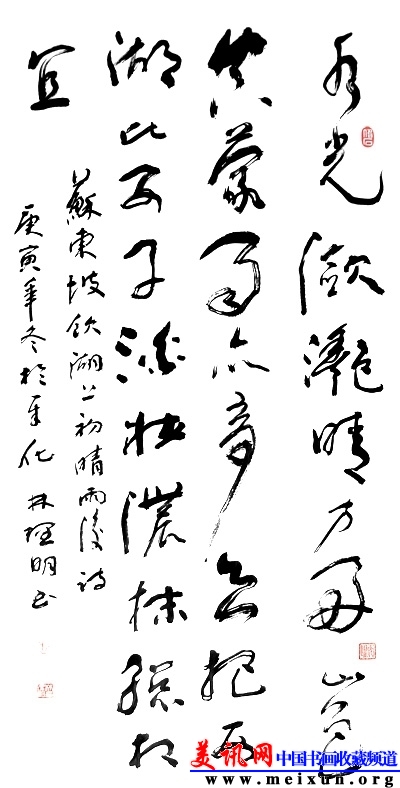 水光瀲灧晴方好山色
空蒙雨亦奇欲把西
湖比西子淡妝濃抹總相
宜
蘇東坡飲湖上初晴雨後詩
庚寅年冬於奉化 林理明书
美讯网 中国书画收藏频道
www.meixun.org